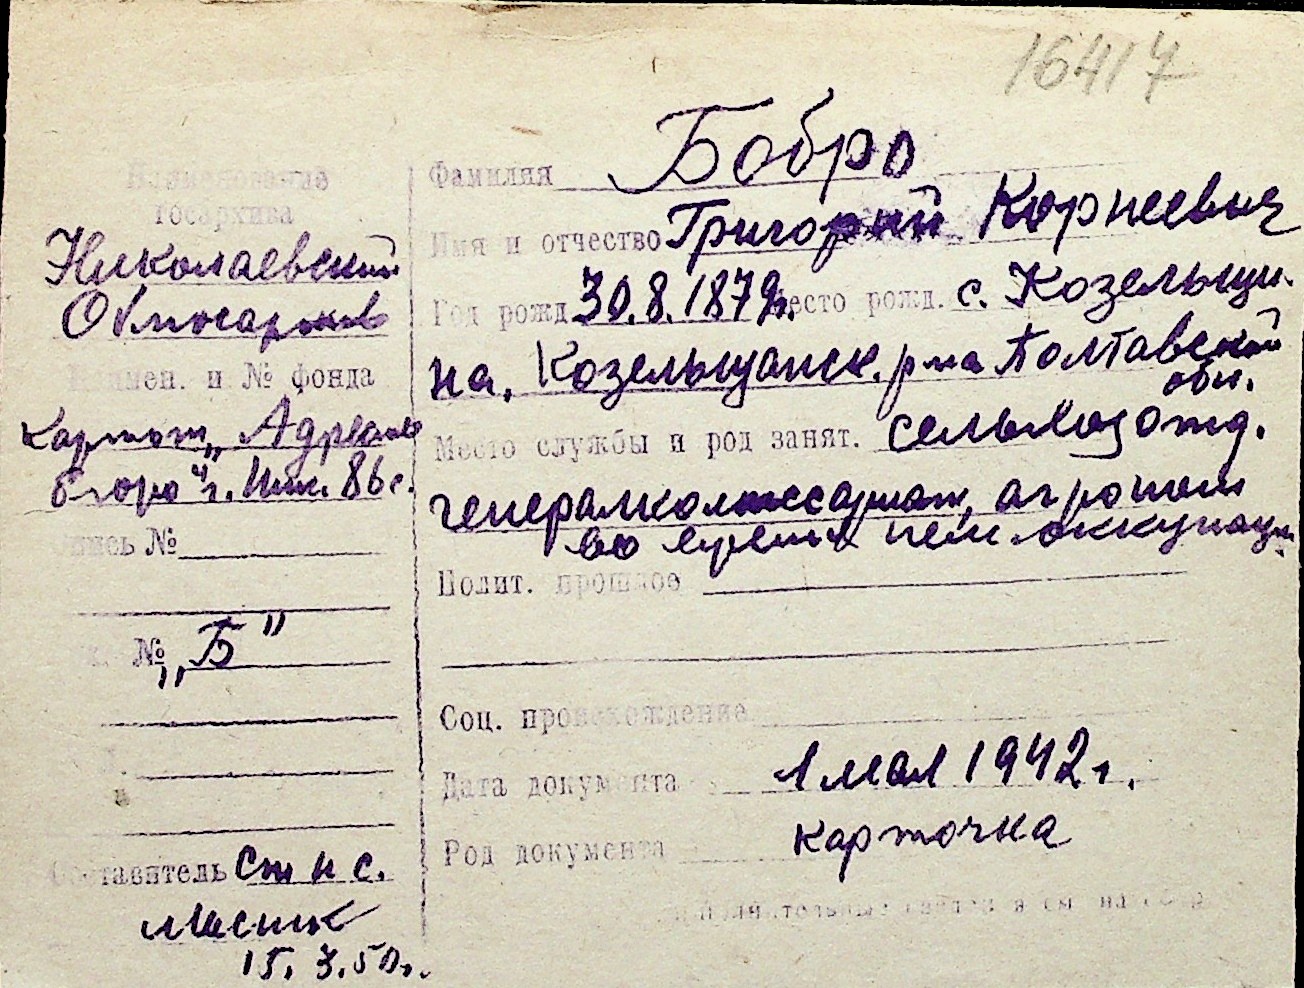 16417
Наименование
госархива
Николаевский
Облгосархив
Наимен. и № фонда
Картот. „Адресное
бюро" г. Ник. 86 с.
Опись №
№ „Б"
Составитель ст н с.
15. 3. 50 г.
Фамилия Бобро
Имя и отчество Григорий Корнеевич
Год рожд. 30.8.1879г. Место рожд. с. Козельщи-
на, Козельщанск. р-на Полтавской
обл.
Место службы и род занят. сельхозотд.
генералкомиссариат, агроном
во время нем. оккупации
Полит. прошлое
Соц. происхождение
Дата документа 1 мая 1942 г.
Род документа карточка